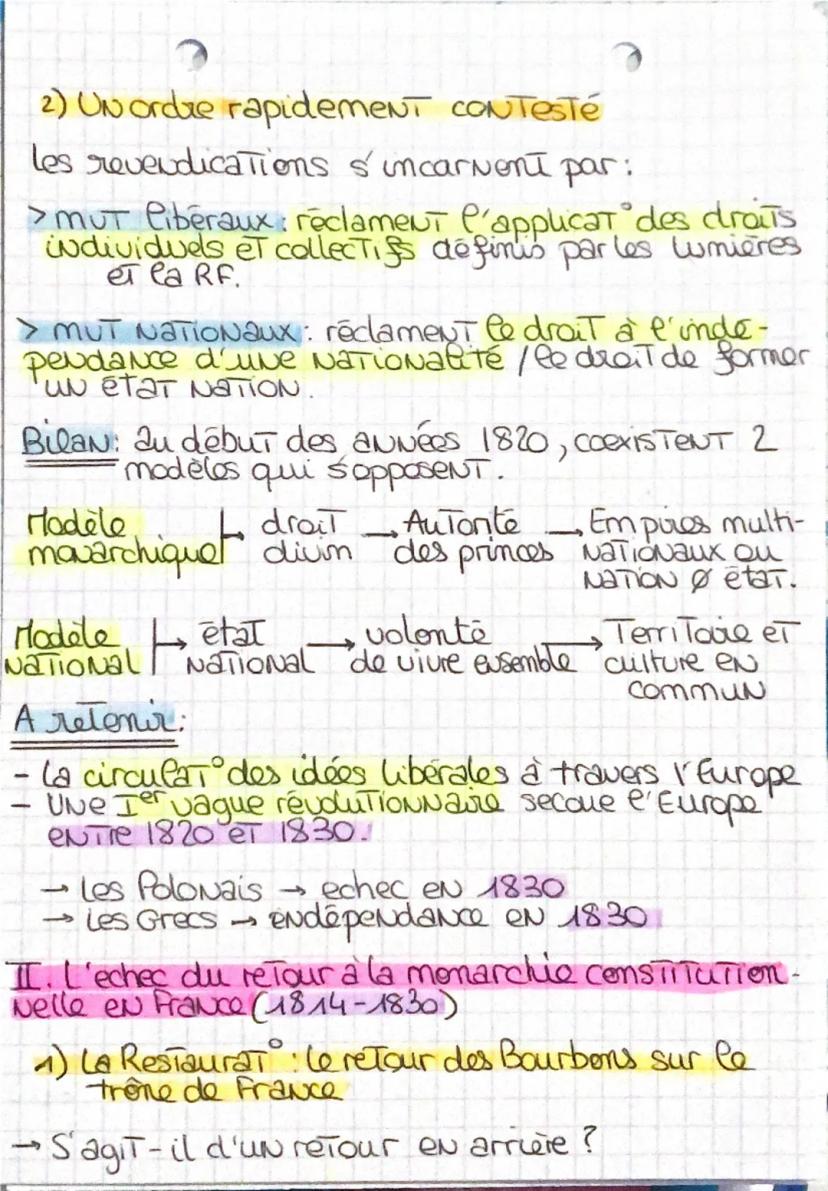 2) Un ordre rapidement contesté
les revendications s'incarnent par :
> mvt libéraux : réclament l'applicat° des droits
individuels et collectifs définis par les lumières
et la RF.
> mvt nationaux : réclament le droit à l'indé-
pendance d'une nationalité / le droit de former
un état nation.
Bilan : au début des années 1820, coexistent 2
modèles qui s'opposent.
Modèle monarchique → droit divin → Autorité des princes → Empires multi-nationaux ou nation Ø état.
Modèle national → état national → volonté de vivre ensemble → Territoire et culture en commun
A retenir :
- la circulat° des idées libérales à travers l'Europe
- Une Ier vague révolutionnaire secoue l'Europe
entre 1820 et 1830.
→ les Polonais → echec en 1830
→ Les Grecs → indépendance en 1830
II. L'echec du retour à la monarchie constitution-
nelle en France (1814-1830)
1) La Restaurat° : le retour des Bourbons sur le
trône de France
→ S'agit-il d'un retour en arrière ?